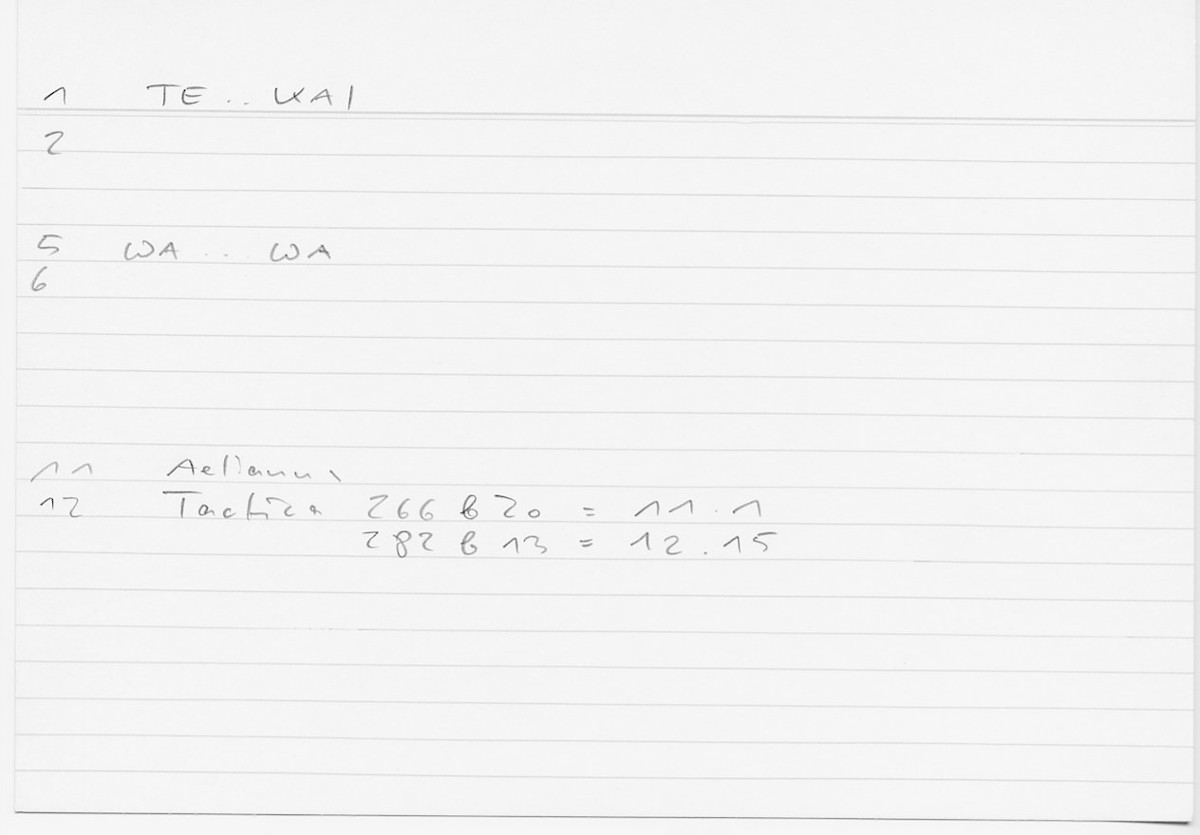 1 TE .. KAI
2
5 WA .. WA
6
11 Aelianus
12 Tactica 266 b 20 = 11.1
282 b 13 = 12.15